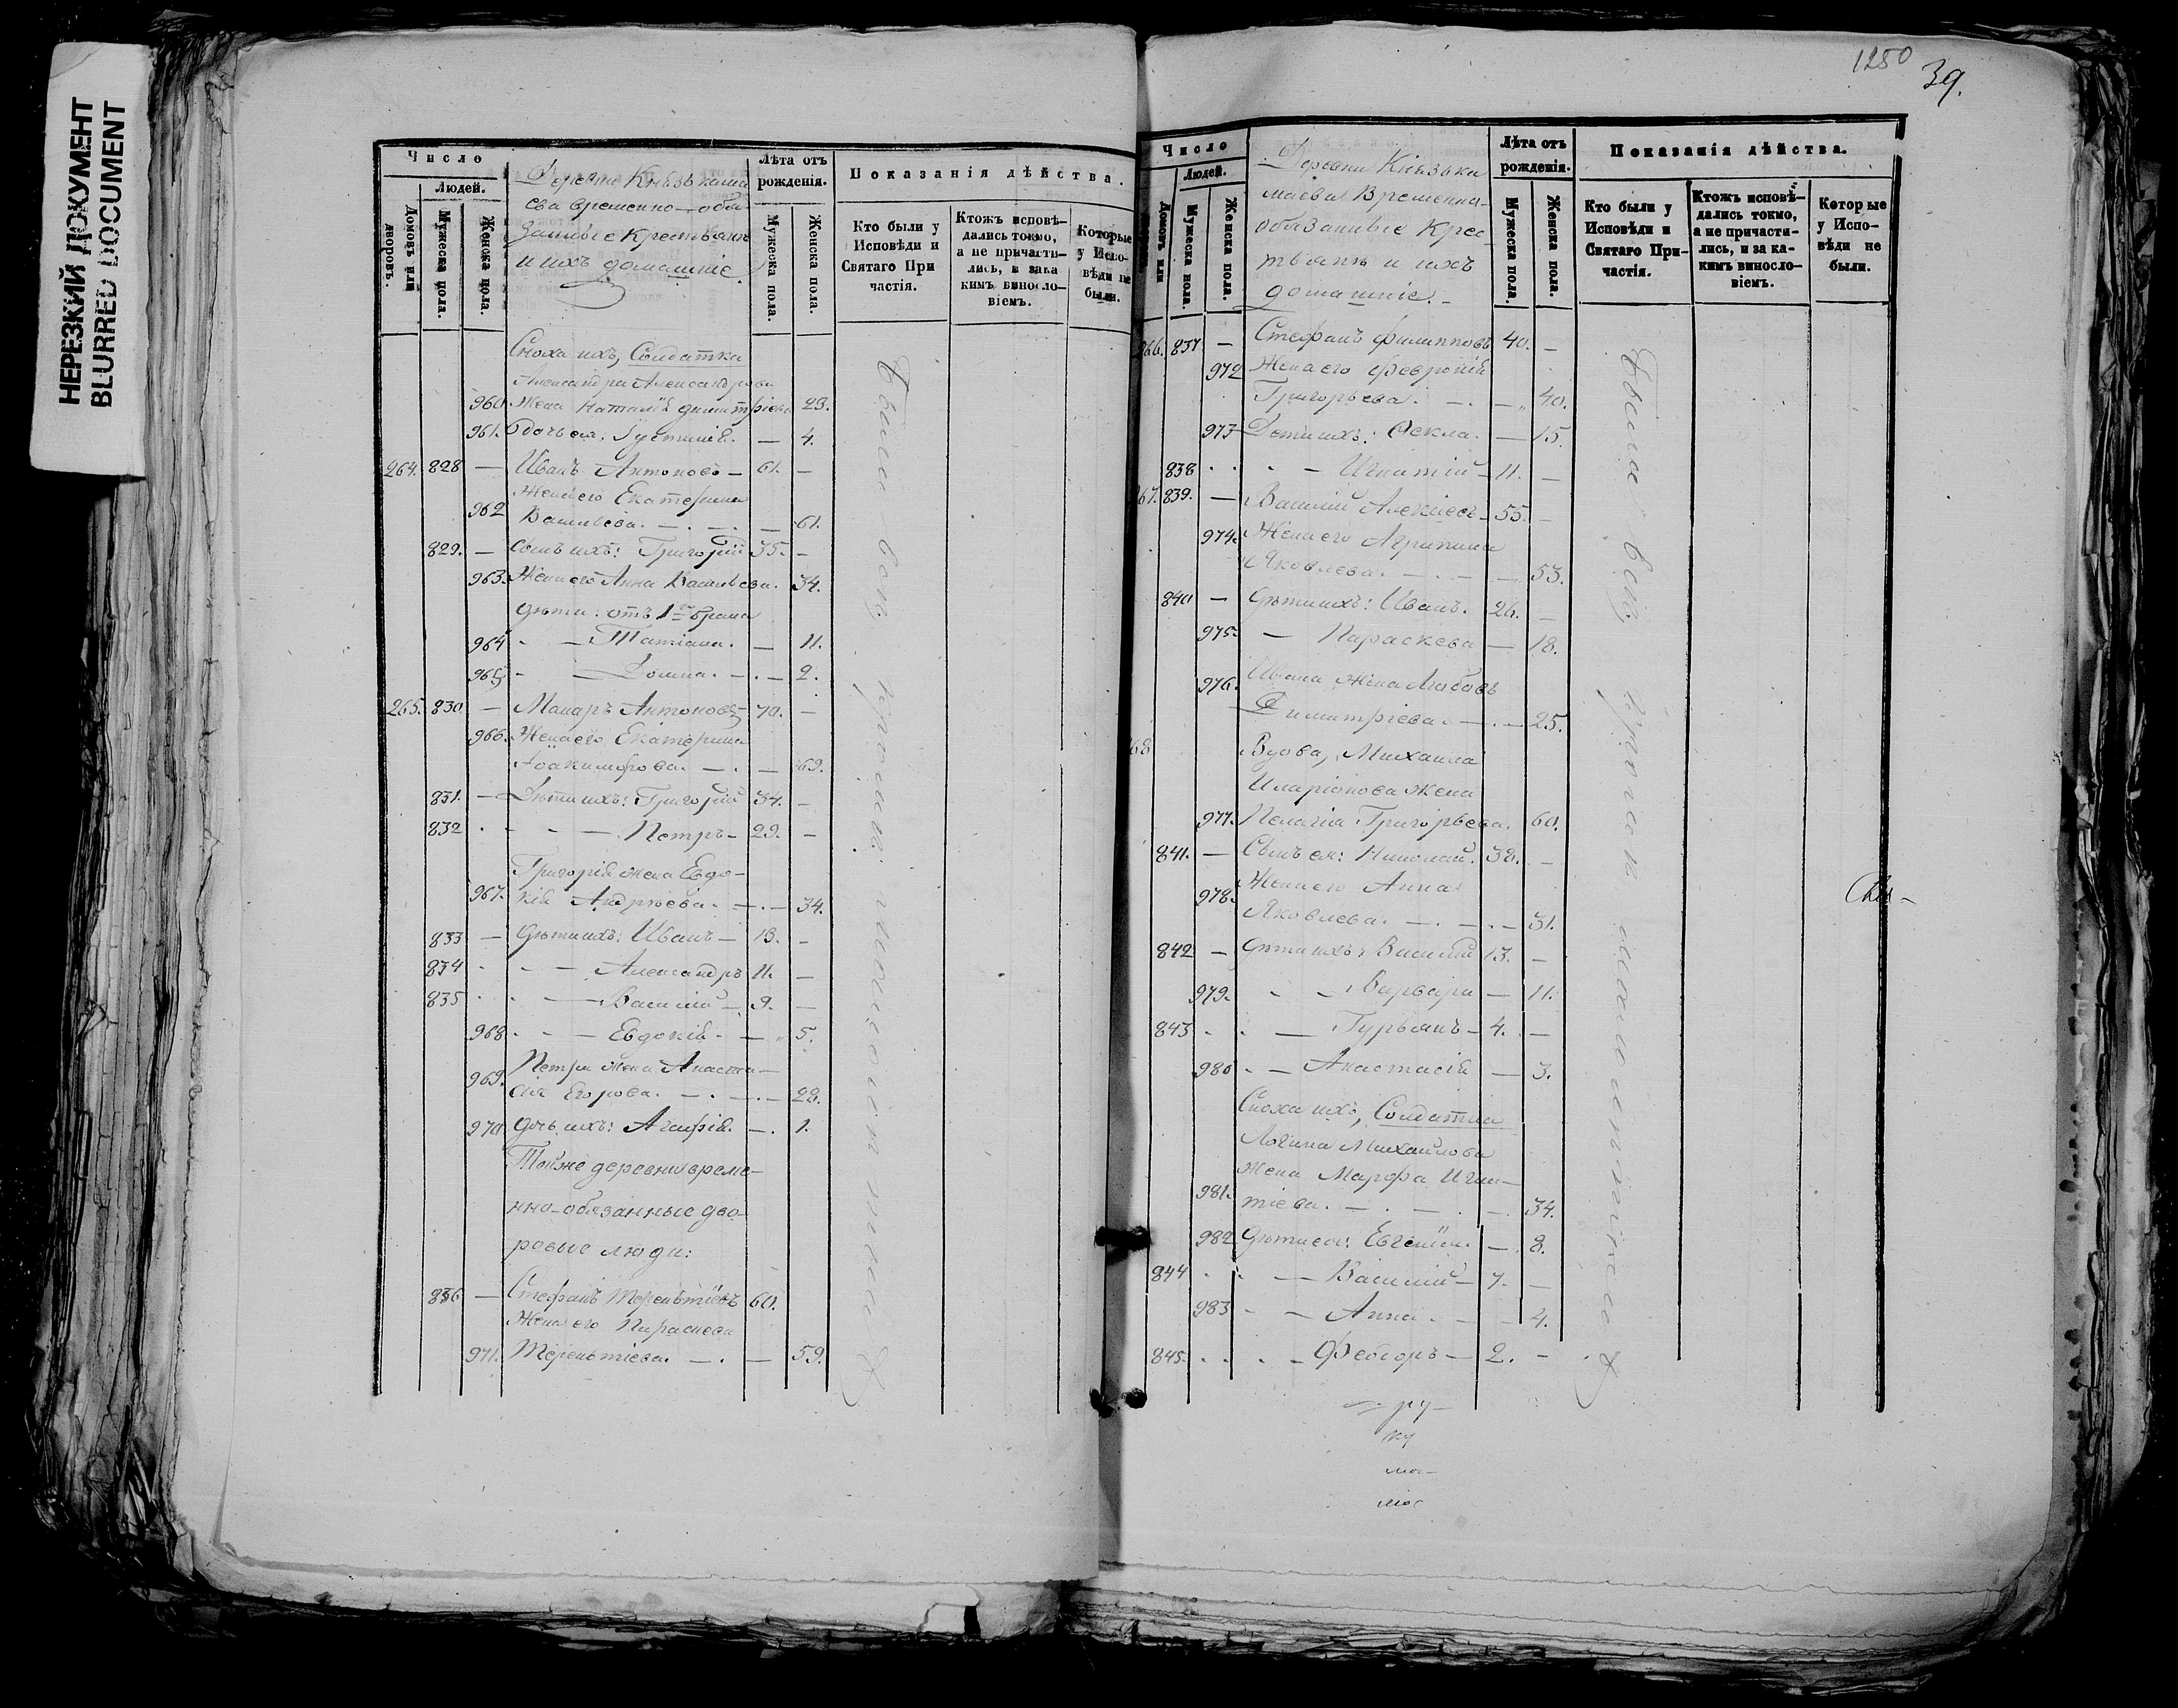 НЕРЕЗКИЙ ДОКУМЕНТ
BLURRED DOCUMENT
Число
Людей.
Домовъ или дворовъ.
Мужеска пола.
Женска пола.
Деревни Князькама
ева временно-обя
занные Крестьяне
и ихъ домашніе.
Лѣта отъ рожденія.
Мужеска пола.
Женска пола.
Показанія дѣйства.
Кто были у Исповѣди и Святаго При частія.
Ктожъ исповѣ-дались токмо, а не причасти-лись, и зака кимъ виносло-віемъ.
Которые у Испо-вѣди не были.
Сноха ихъ, Солдатка
Александра Александрова
960. Жена Наталія Димитріева 23.
961. Дочь ея: Іустинія. — 4.
264. 828 — Иванъ Антоновъ — 61. —
Жена его Екатерина
962 Васильева. — . — . — 61.
829. — Сынъ ихъ: Григорій 35. —
963. Жена его Анна Васильева. 34.
дѣти: отъ 1го брака
964 - — Татіана. — 11.
965 - — Домна. — . — 2.
265. 830 — Макаръ Антоновъ — 70. —
966. Жена его Екатерина
— . — 69.
831. — Дѣти ихъ: Григорій 34. —
832 . - — Петръ — 29. —
Григорія жена Евдо-
967. кія Андреева. — . — 34.
833 — Дѣти ихъ: Иванъ — 13. —
834 . - — Александръ 11. —
835 . . — Василій — 9. —
968 . - — Евдокія. — 5.
Петра жена Анаста-
969. сія Егорова. — . — . — 28.
970 Дочь ихъ: Агафія. — . 1.
Той же деревни време-
нно-обязанные дво-
ровые люди:
836 — Стефанъ Терентіевъ 60.
Жена его Параскева
971. Терентіева. — . — 59.
Были вси
1250
39.
Число
Людей.
Домовъ или
Мужеска пола.
Женска пола.
Деревни Князька
маева Временно-
обязанные Крес-
тьяне и ихъ
домашніе. -
Лѣта отъ рожденія.
Мужеска пола.
Женска пола.
Показанія дѣйства.
Кто были у Исповѣди и Святаго При-частія.
Ктожъ исповѣ-дались токмо, а не причасти-лись, и за ка-кимъ виносло-віемъ.
Которые у Испо-вѣди не были.
266. 837 — Стефанъ Филипповъ 40. —
972 Жена его Февронія
Григорьева. — . — 40.
973 Дети ихъ: Ѳекла. — 15.
838 . . - — Игнатій — 11. —
267. 839. — Василій Алексіевъ — 55. —
974. Жена его Агрипина
Яковлева. — . — — 53.
840 — Дѣти ихъ: Иванъ. 26. —
975. — Параскева — 18.
976. Ивана жена Любовь
Димитріева. — . — 25.
268 Вдова, Михаила
Иларіонова жена
977. Пелагія Григорьева. 60.
841. — Сынъ ея: Николай. 38. —
978. Жена его Анна
Яковлева. — . — . — 31.
842 — Дѣти ихъ: Василій 13. —
979. - — Варвара — 11.
843 . . — Гурьянъ — 4. —
980 . — Анастасія — 3.
Сноха ихъ, Солдатка
Логина Михайлова
жена Марфа Игна-
981. тіева. — . — . — 34.
982 Дѣти ея: Евгенія. — . 8.
844 . . — Василій — 7. —
983 - — Анна. — 4.
845. . . . — Ѳеодоръ — 2. —
Были вси
ру-
ку